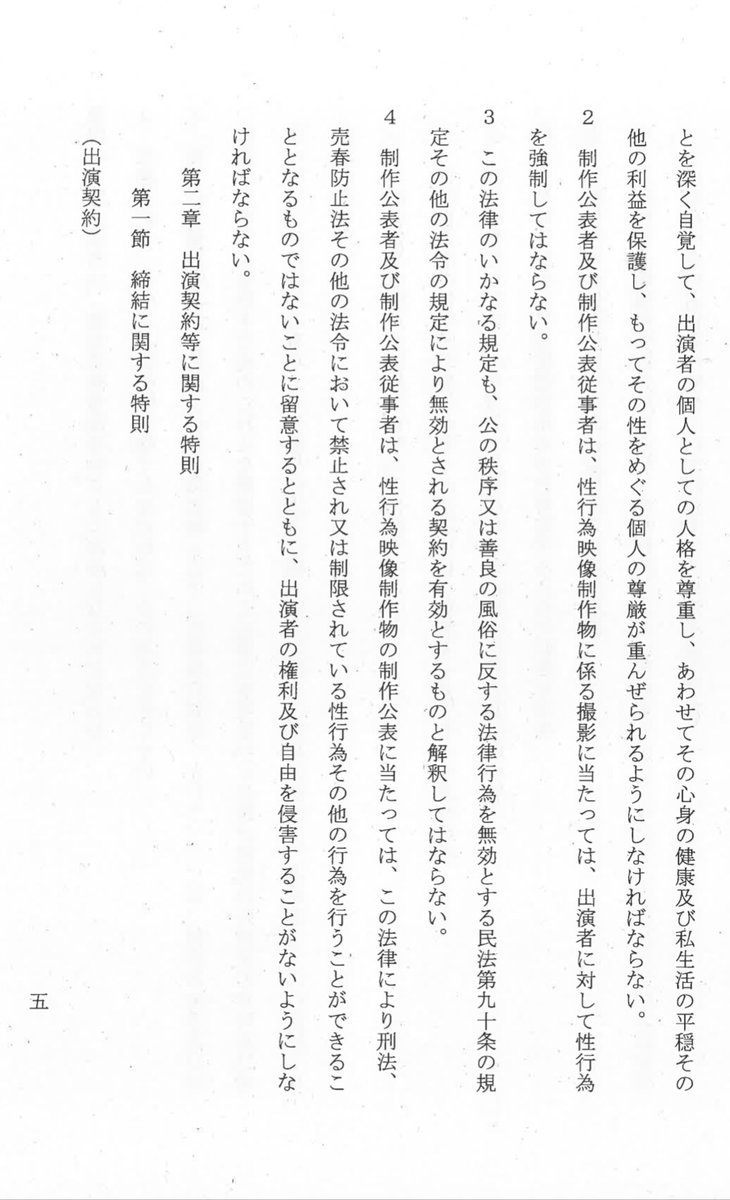 とを深く自覚して、出演者の個人としての人格を尊重し、あわせてその心身の健康及び私生活の平穏その
他の利益を保護し、もってその性をめぐる個人の尊厳が重んぜられるようにしなければならない。
2　制作公表者及び制作公表従事者は、性行為映像制作物に係る撮影に当たっては、出演者に対して性行為
を強制してはならない。
3　この法律のいかなる規定も、公の秩序又は善良の風俗に反する法律行為を無効とする民法第九十条の規
定その他の法令の規定により無効とされる契約を有効とするものと解釈してはならない。
4　制作公表者及び制作公表従事者は、性行為映像制作物の制作公表に当たっては、この法律により刑法、
売春防止法その他の法令において禁止され又は制限されている性行為その他の行為を行うことができるこ
ととなるものではないことに留意するとともに、出演者の権利及び自由を侵害することがないようにしな
ければならない。
第二章　出演契約等に関する特則
第一節　締結に関する特則
（出演契約）
五